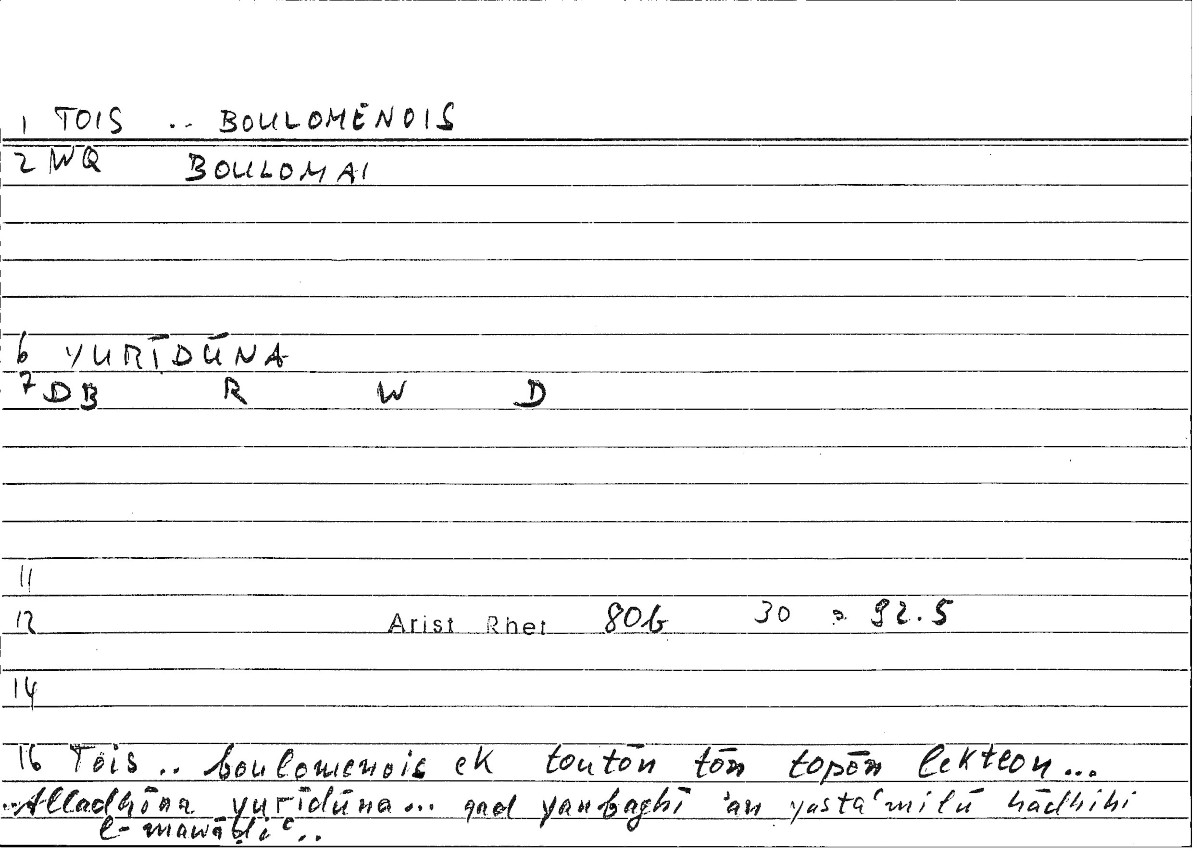 1 TOIS .. BOULOMENOIS
2 WQ BOULOMAI
6 YURĪDŪNA
7 DB R W D
11
12 Arist Rhet 80b 30 = 92.5
14
16 Tois .. boulomenois ek toutōn tōn topōn lekteon...
..Alladhīna yurīdūna... qad yanbaghī 'an yasta‘milū hādhihi
l-mawāḍi‘..